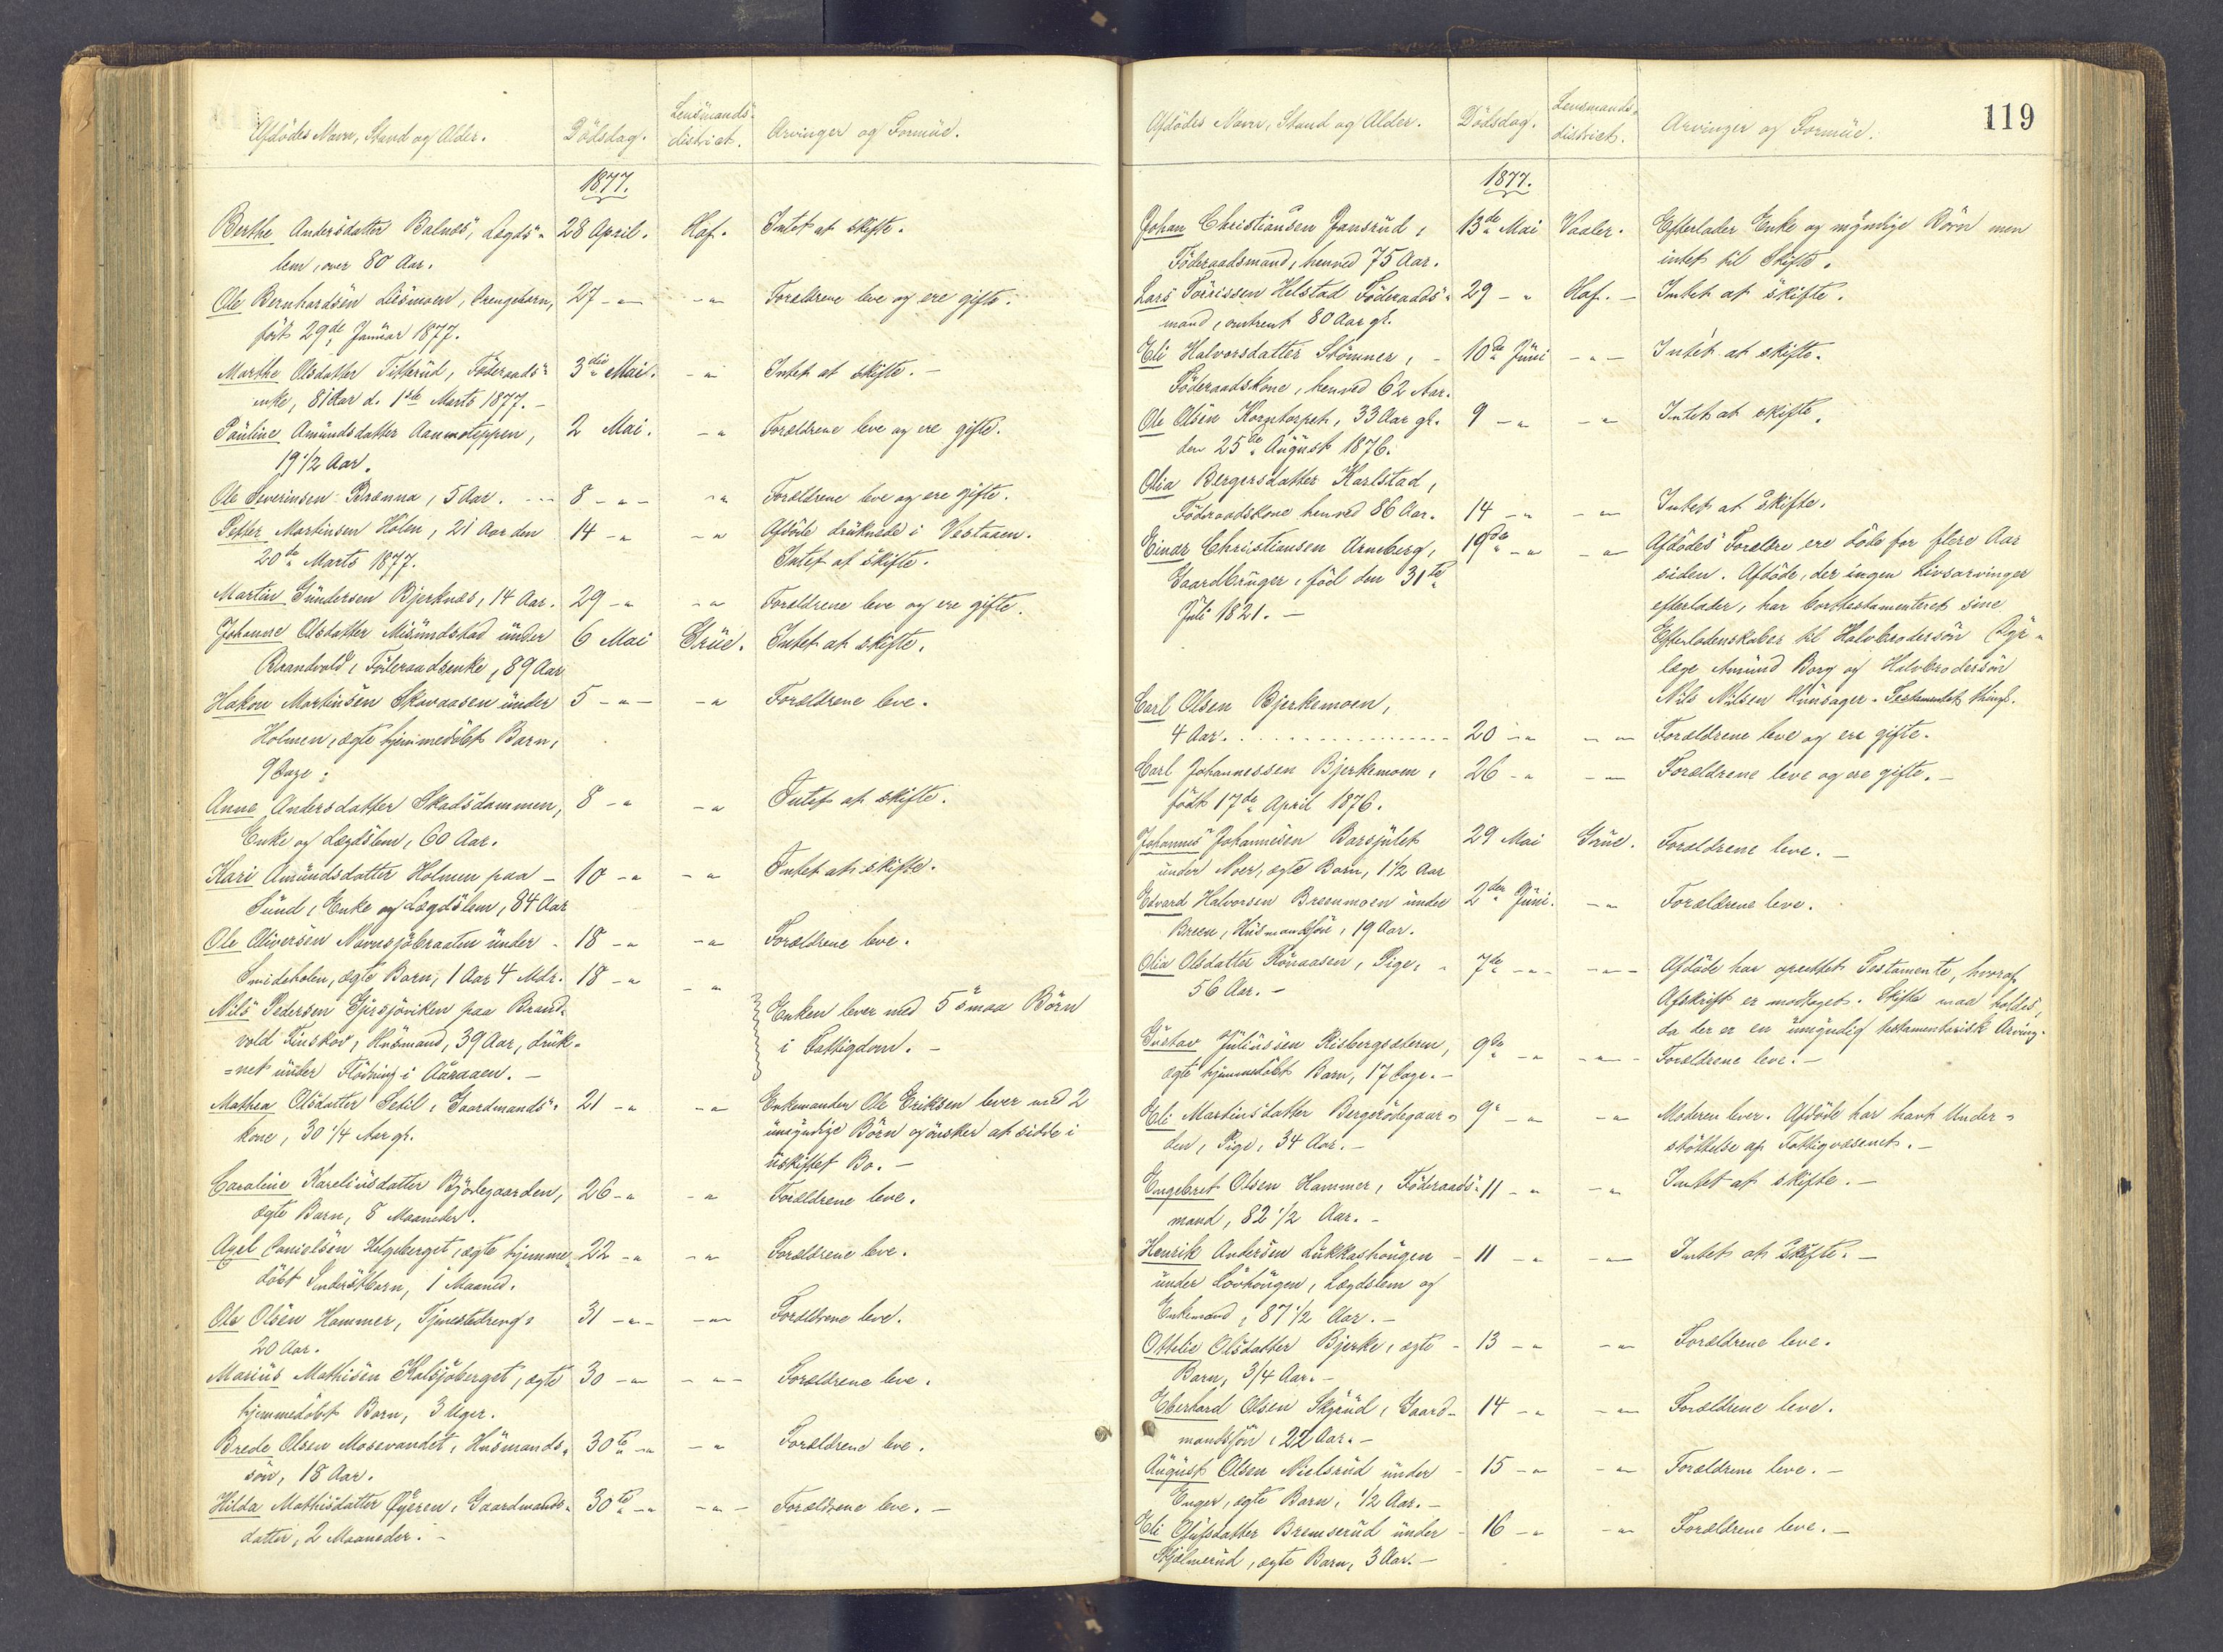 Afdödes Navn, Stand og Alder. Dödsdag. Lensmands-
district. Arvinger og Formue.
1877.
Berthe Andersdatter Balnes, Lægds- 28 April. Hof. Intet at skifte.
lem, over 80 Aar.
Ole Bernhardsen Liesmoen, Drengebarn, 27 -"- -"- Forældrene leve og ere gifte.
født 29de Januar 1877.
Marthe Olsdatter Titterud, Föderaads- 3die Mai. -"- Intet at skifte. -
enke, 81 Aar d. 1ste Marts 1877. -
Pauline Amundsdatter Aanmoteppen, 2 Mai. -"- Forældrene leve og ere gifte.
19 1/2 Aar.
Ole Severinsen Brænna, 5 Aar. 8 -"- -"- Forældrene leve og ere gifte.
Petter Martinsen Holen, 21 Aar den 14 -"- -"- Afdöde druknede i Vestaaen.
20de Marts 1877. Intet at skifte.
Martin Gundersen Bjerknæs, 14 Aar. 29 -"- -"- Forældrene leve og ere gifte.
Johanne Olsdatter Misundstad under 6 Mai Grue. Intet at skifte.
Brandvold, Föderaadsenke, 89 Aar
Hakon Martinsen Skavaasen under 5 -"- -"- Forældrene leve.
Holmen, ægte hjemmedöbt Barn,
9 Dage.
Anne Andersdatter Skadsdammen, 8 -"- -"- Intet at skifte.
Enke og Lægdslem, 60 Aar.
Kari Amundsdatter Holmen paa - 10 -"- -"- Intet at skifte.
Sund, Enke og Lægdslem, 84 Aar
Ole Oliversen Navnsjöbraaten under - 18 -"- -"- Forældrene leve.
Smideholen, ægte Barn, 1 Aar 4 Mdr. 18 -"- -"-
Nils Pedersen Gjersjöviken paa Brand- Enken lever med 5 smaa Börn
vold Finskov, Husmand, 39 Aar, druk- i Fattigdom. -
=net under Flödning i Aaraaen. -
Mathea Olsdatter Setil, Gaardmands- 21 -"- -"- Enkemanden Ole Eriksen lever med 2
kone, 30 1/4 Aar gl. umyndige Börn og önsker at sidde i
uskiftet Bo. -
Caroline Kareliusdatter Bjödegaarden, 26 -"- -"- Forældrene leve.
ægte Barn, 8 Maaneder.
Axel Danielsen Helgeberget, ægte hjemme 22 -"- -"- Forældrene leve.
döbt Inderstbarn, 1 Maaned.
Ole Olsen Hammer, Tjenestedreng, 31 -"- -"- Forældrene leve.
20 Aar.
Marius Mathisen Kalsjöberget, ægte 30 -"- -"- Forældrene leve.
hjemmedöbt Barn, 3 Uger.
Brede Olsen Mosevandet, Husmands- 30te -"- -"- Forældrene leve.
sön, 18 Aar.
Hilda Mathisdatter Øyeren, Gaardmands- 30te -"- -"- Forældrene leve. -
datter, 2 Maaneder. -
119
Afdödes Navn, Stand og Alder. Dödsdag. Lensmands-
district. Arvinger og Formue.
1877.
Johan Christiansen Jansrud, 13de Mai Vaaler. Efterlader Enke og myndige Börn men
Föderaadsmand, henved 75 Aar. intet til Skifte.
Lars Törrissen Helstad Föderaads- 29 -"- Hof. - Intet at skifte.
mand, omtrent 80 Aar gl.
Eli Halvorsdatter Stömner, - 10de Juni -"- Intet at skifte.
Föderaadskone, henved 62 Aar.
Ole Olsen Korntorpet, 33 Aar gl. 9 -"- -"- Intet at skifte.
den 25de August 1876.
Olia Bergersdatter Karlstad,
Föderaadskone henved 86 Aar. 14 -"- -"- Intet at skifte.
Einar Christiansen Arneberg, 19de -"- -"- Afdödes Forældre ere döde for flere Aar
Gaardbruger, föd den 31te siden. Afdöde, der ingen Livsarvinger
Juli 1821. - efterlader, har borttestamenteret sine
Efterladenskaber til Halvbrodersön Dyr-
læge Amund Borg og Halvbrodersön
Nils Nilsen Hunsager. Testamentet thingl.
Carl Olsen Bjerkemoen,
4 Aar. 20 -"- -"- Forældrene leve og ere gifte.
Carl Johannessen Bjerkemoen, 26 -"- -"- Forældrene leve og ere gifte. -
födt 17de April 1876.
Johannes Johannesen Barsjutet 29 Mai Grue. Forældrene leve. -
under Noer, ægte Barn, 1 1/2 Aar
Edvard Halvorsen Breenmoen under 2den Juni. -"- Forældrene leve.
Breen, Husmandssön, 19 Aar.
Olia Olsdatter Rönaasen, Pige, - 7de -"- -"- Afdöde har oprettet Testamente, hvoraf
56 Aar. - Afskrift er modtaget. Skifte maa holdes,
da der er en umyndig testamentarisk Arving.
Gustav Juliussen Risbergsæteren, 9de -"- -"- Forældrene leve. -
ægte hjemmedöbt Barn, 17 Dage. -
Eli Martinsdatter Bergerödegaar- 9 -"- -"- Moderen lever. Afdöde har havt Under-
den, Pige, 34 Aar. - stöttelse af Fattigvæsenet. -
Engebret Olsen Hammer, Föderaads- 11 -"- -"- Intet at skifte. -
mand, 82 1/2 Aar. -
Henrik Andersen Lukkashöugen - 11 -"- -"- Intet at skifte. -
under Lövhöugen, Lægdslem og
Enkemand, 87 1/2 Aar. -
Ottilie Olsdatter Bjerke, ægte - 13 -"- -"- Forældrene leve.
Barn, 3/4 Aar. -
Eberhard Olsen Skyrud, Gaard- 14 -"- -"- Forældrene leve.
mandssön, 22 Aar. -
August Olsen Nielsrud under - 15 -"- -"- Forældrene leve. -
Enger, ægte Barn, 1/2 Aar. -
Eli Olufsdatter Bremserud under - 16 -"- -"- Forældrene leve. -
Skjelmerud, ægte Barn, 3 Aar. -